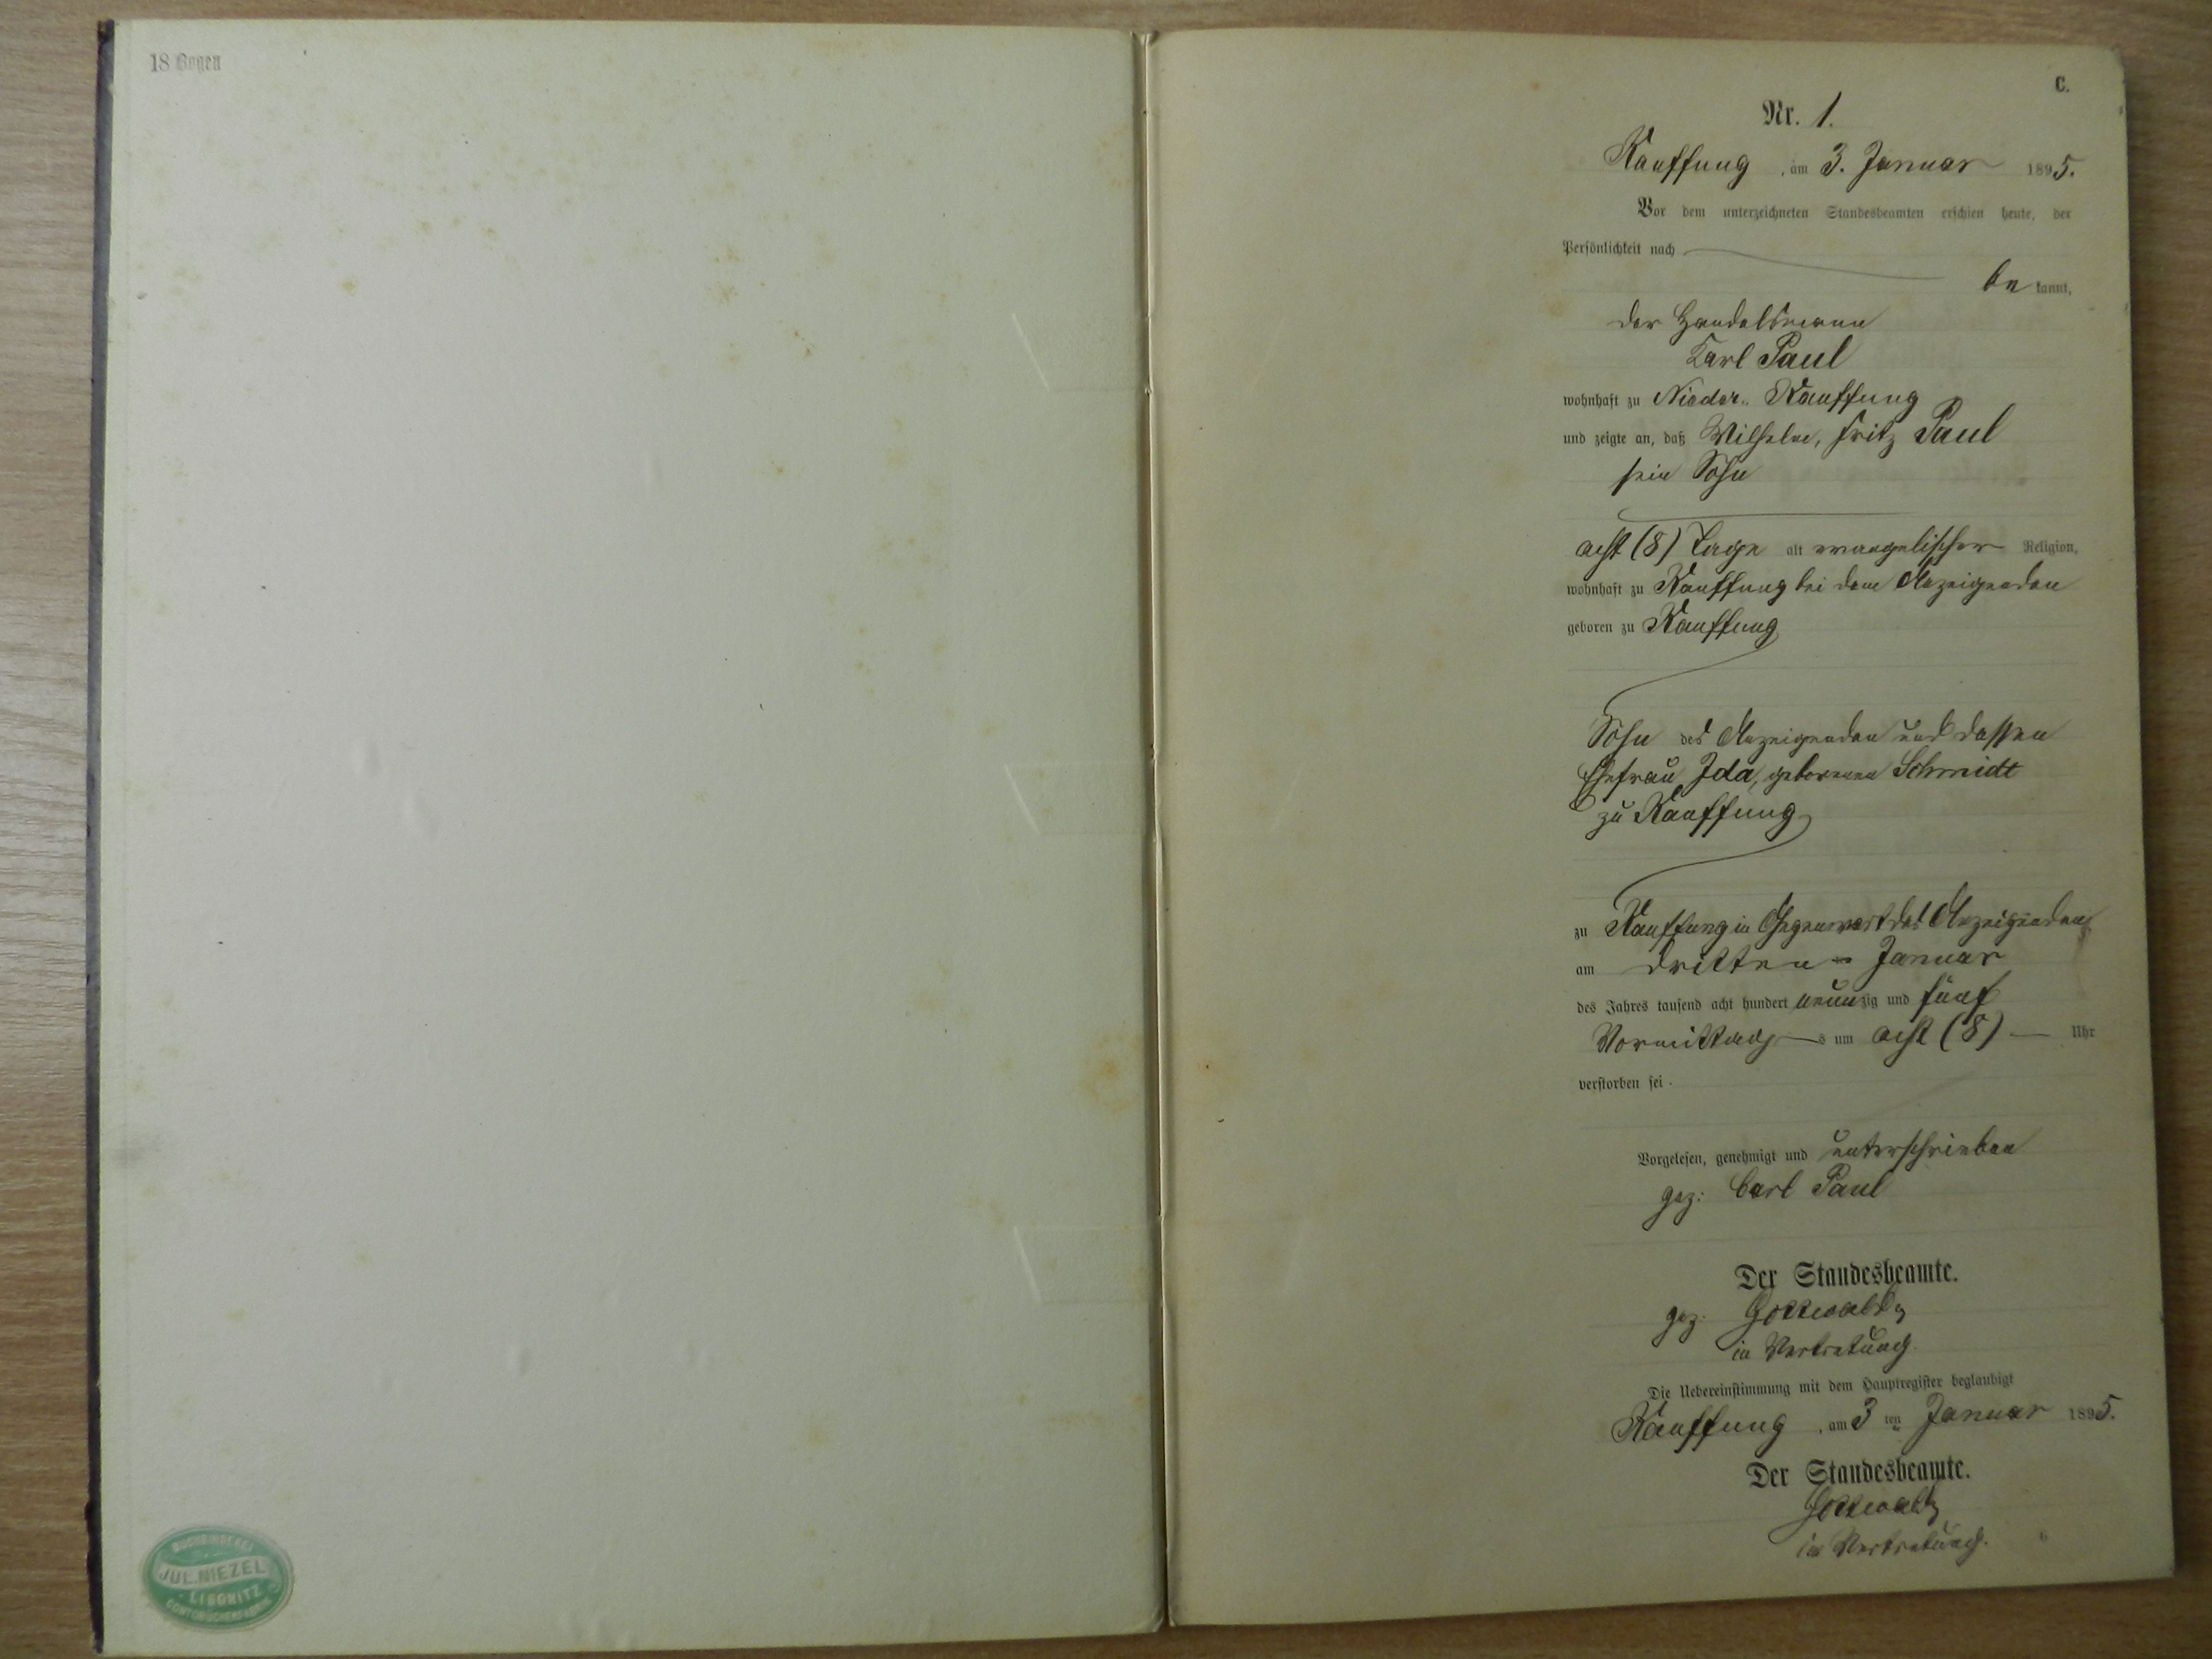 18 Bogen
BUCHBINDEREI
JUL. NIEZEL
LIEGNITZ
CONTOBÜCHERFABRIK
C.
Nr. 1.
Kauffung, am 3. Januar 1895.
Vor dem unterzeichneten Standesbeamten erschien heute, der
Persönlichkeit nach
be kannt,
der Handelsmann
Karl Paul
wohnhaft zu Nieder-Kauffung
und zeigte an, daß Wilhelm, Fritz Paul
sein Sohn
acht (8) Tage alt evangelischer Religion,
wohnhaft zu Kauffung bei dem Anzeigenden
geboren zu Kauffung
Sohn des Anzeigenden und dessen
Ehefrau Ida, geborenen Schmidt
zu Kauffung
zu Kauffung in Gegenwart des Anzeigenden
am dritten Januar
des Jahres tausend acht hundert neunzig und fünf
Vormittags um acht (8) Uhr
verstorben sei.
Vorgelesen, genehmigt und unterschrieben
gez: Carl Paul
Der Standesbeamte.
gez:
in Vertretung.
Die Uebereinstimmung mit dem Hauptregister beglaubigt
Kauffung, am 3 ten Januar 1895.
Der Standesbeamte.
in Vertretung.
6